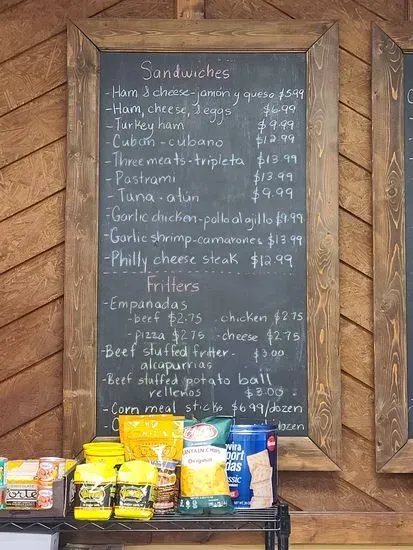 Sandwiches
- Ham & cheese - jamón y queso $5.99
- Ham, cheese, & eggs $6.99
- Turkey ham $9.99
- Cuban - cubano $12.99
- Three meats - tripleta $13.99
- Pastrami $13.99
- Tuna - atún $9.99
- Garlic chicken - pollo al ajillo $9.99
- Garlic shrimp - camarones $13.99
- Philly cheese steak $12.99
Fritters
- Empanadas
- beef $2.75 - chicken $2.75
- pizza $2.75 - cheese $2.75
- Beef stuffed fritter - $3.00
alcapurrias
- Beef stuffed potato ball
rellenos $3.00
- Corn meal sticks $6.99/dozen
dozen
Original